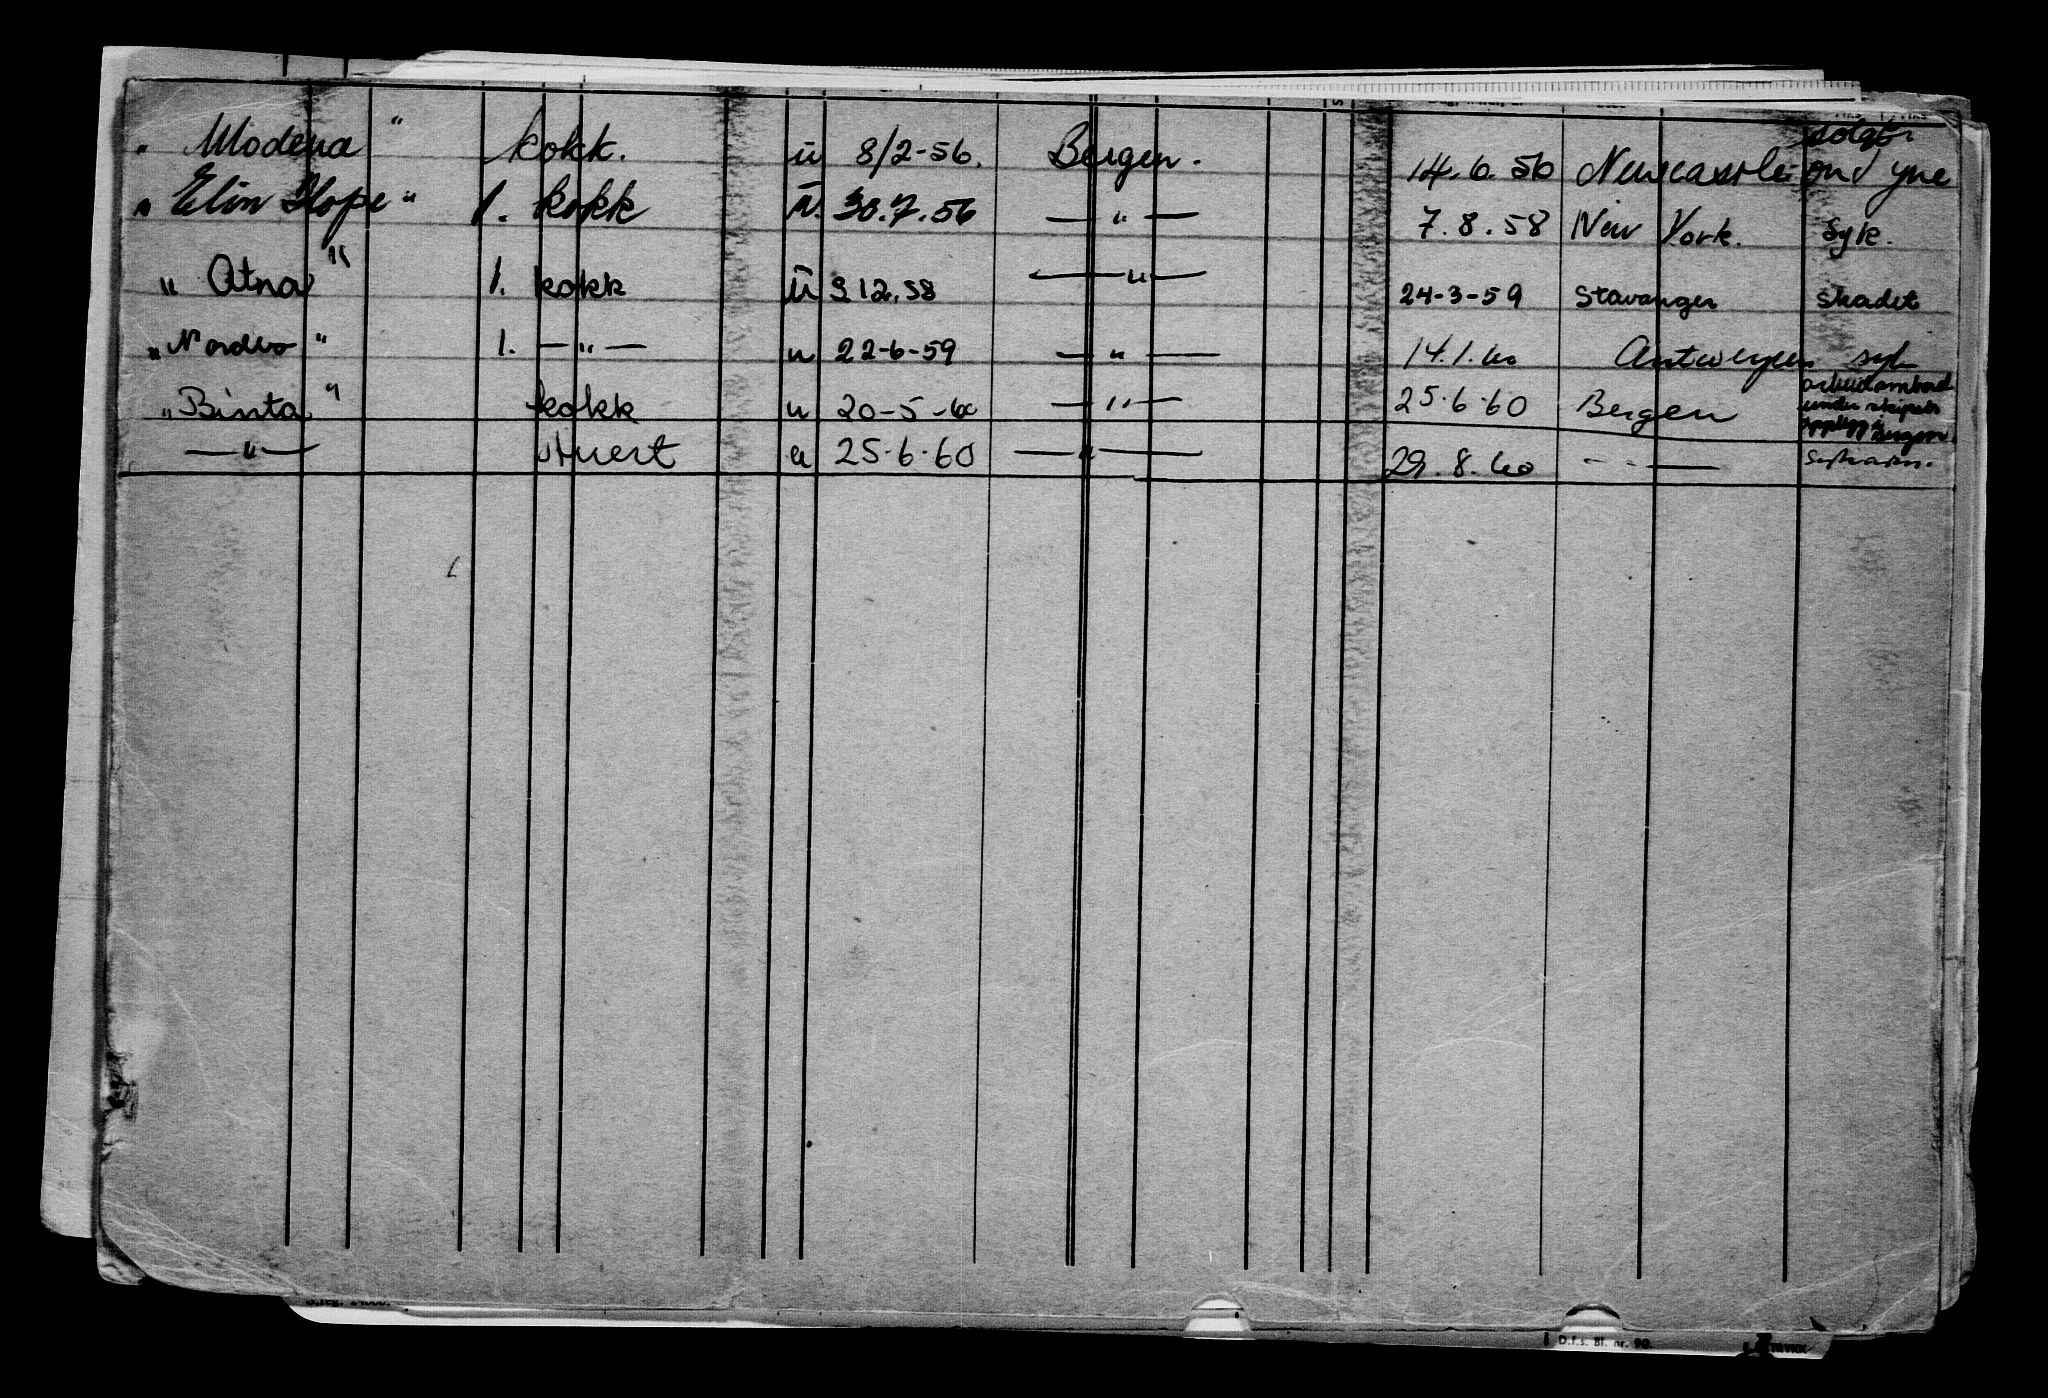 „ Modena " kokk. ü 8/2-56. Bergen. 14.6.56 Newcastle ond yne
„ Elin Hope " 1. kokk ü. 30.7.56 —"— 7.8.58 New York. Syk.
„ Atna " 1. kokk ü 9.12.58 —"— 24-3-59 Stavanger skadet
„ Nordvo " 1. —"— u 22-6-59 —"— 14.1.60 Antwerpen syk
„ Binta " kokk u 20-5-60 —"— 25.6.60 Bergen
under skipets
opplegg i
Bergen
—"— stuert a 25.6.60 —"— 29.8.60 —"—
D.f.s. Bl. nr. 90.